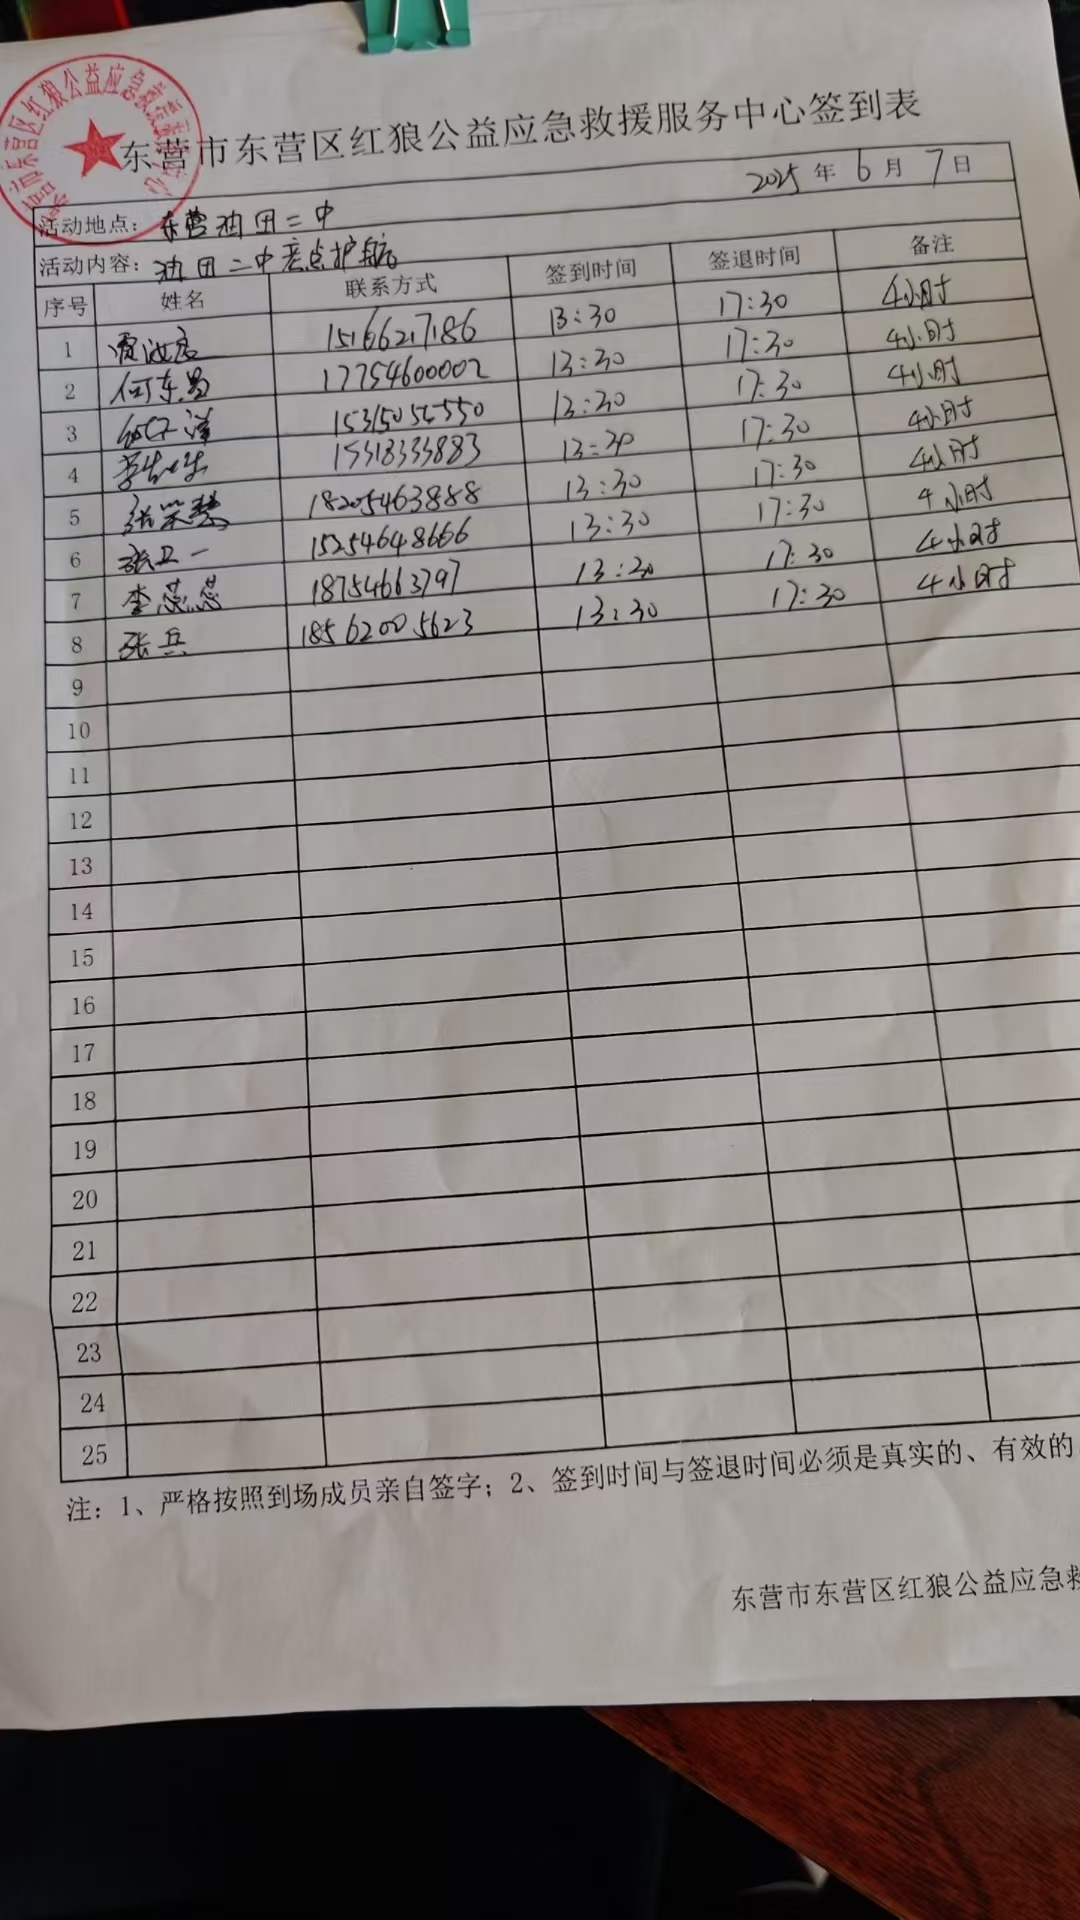 东营市东营区红狼公益应急救援服务中心签到表
2025年6月7日
活动地点：东营油田二中
活动内容：油田二中考点护航
序号 姓名 联系方式 签到时间 签退时间 备注
1 15166217186 13:30 17:30 4小时
2 何东昌 17754600002 13:30 17:30 4小时
3 13:30 17:30 4小时
4 15318333883 13:30 17:30 4小时
5 张荣慧 18205463888 13:30 17:30 4小时
6 张卫一 15254648666 13:30 17:30 4小时
7 李蕊蕊 18754663797 13:30 17:30 4小时
8 张兵 18562005623 13:30 17:30 4小时
9
10
11
12
13
14
15
16
17
18
19
20
21
22
23
24
25
注：1、严格按照到场成员亲自签字；2、签到时间与签退时间必须是真实的、有效的
东营市东营区红狼公益应急救